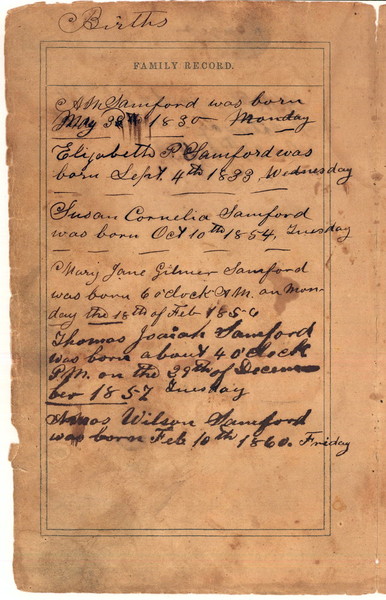 Births
FAMILY RECORD.
A M Samford was born
May 1830 Monday
Elizabeth P. Samford was
born Sept. 4th 1833 Wednesday
Susan Cornelia Samford
was born Oct 10th 1854, Tuesday
Mary Jane Gilmer Samford
was born 6 o'clock A.M. on Mon-
day the 18th of Feb 1856
Thomas Josiah Samford
was born about 4 o'clock
P.M. on the 29th of Decem
ber 1857 Tuesday
Amos Wilson Samford
was born Feb 10th 1860. Friday